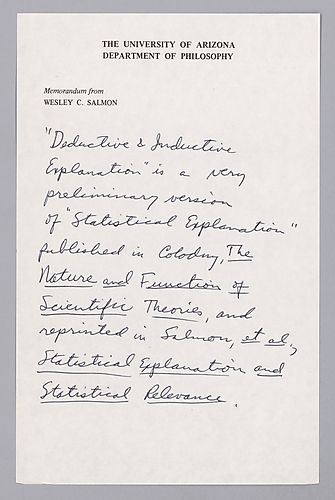 THE UNIVERSITY OF ARIZONA
DEPARTMENT OF PHILOSOPHY
Memorandum from
WESLEY C. SALMON
"Deductive & Inductive
Explanation" is a very
preliminary version
of "Statistical Explanation"
published in Colodny, The
Nature and Function of
Scientific Theories, and
reprinted in Salmon, et al.,
Statistical Explanation and
Statistical Relevance.